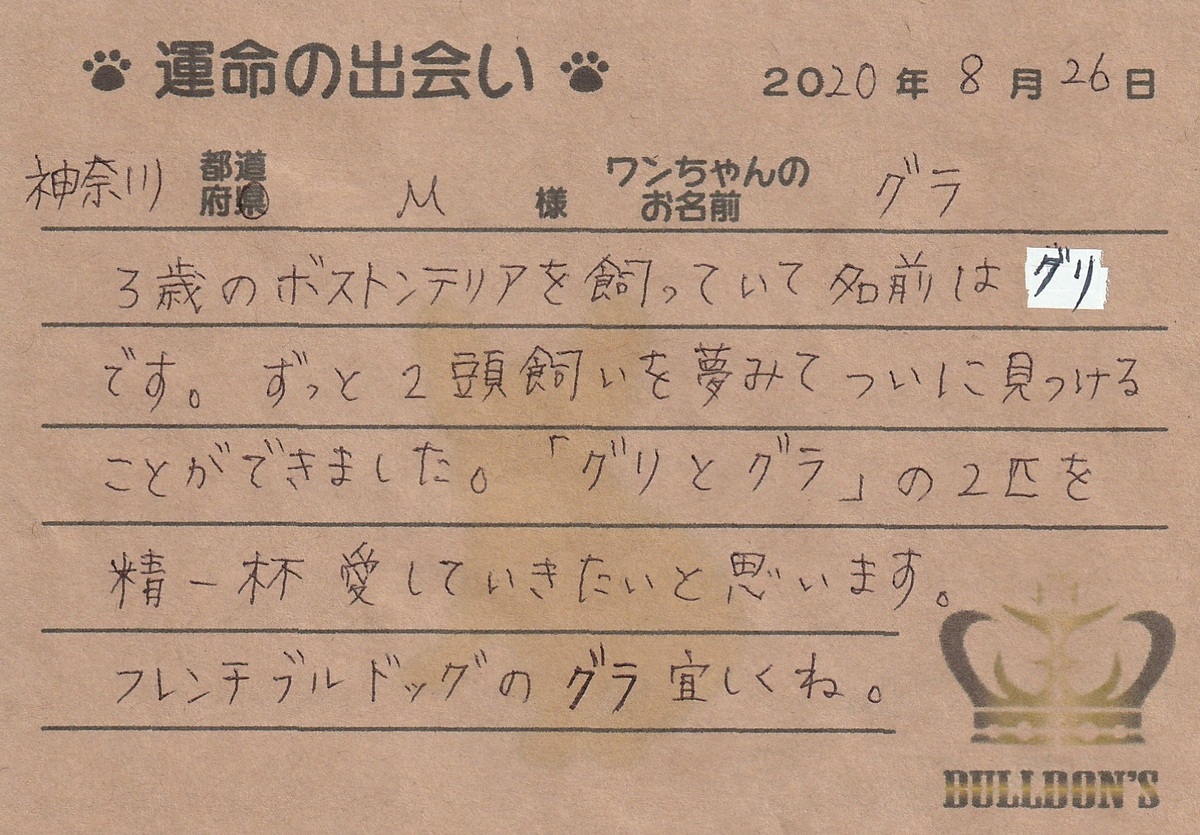 運命の出会い 2020年8月26日
神奈川 都道府県 M 様 ワンちゃんのお名前 グラ
3歳のボストンテリアを飼っていて名前はグリ
です。ずっと2頭飼いを夢みてついに見つける
ことができました。「グリとグラ」の2匹を
精一杯愛していきたいと思います。
フレンチブルドッグのグラ宜しくね。
BULLDON'S